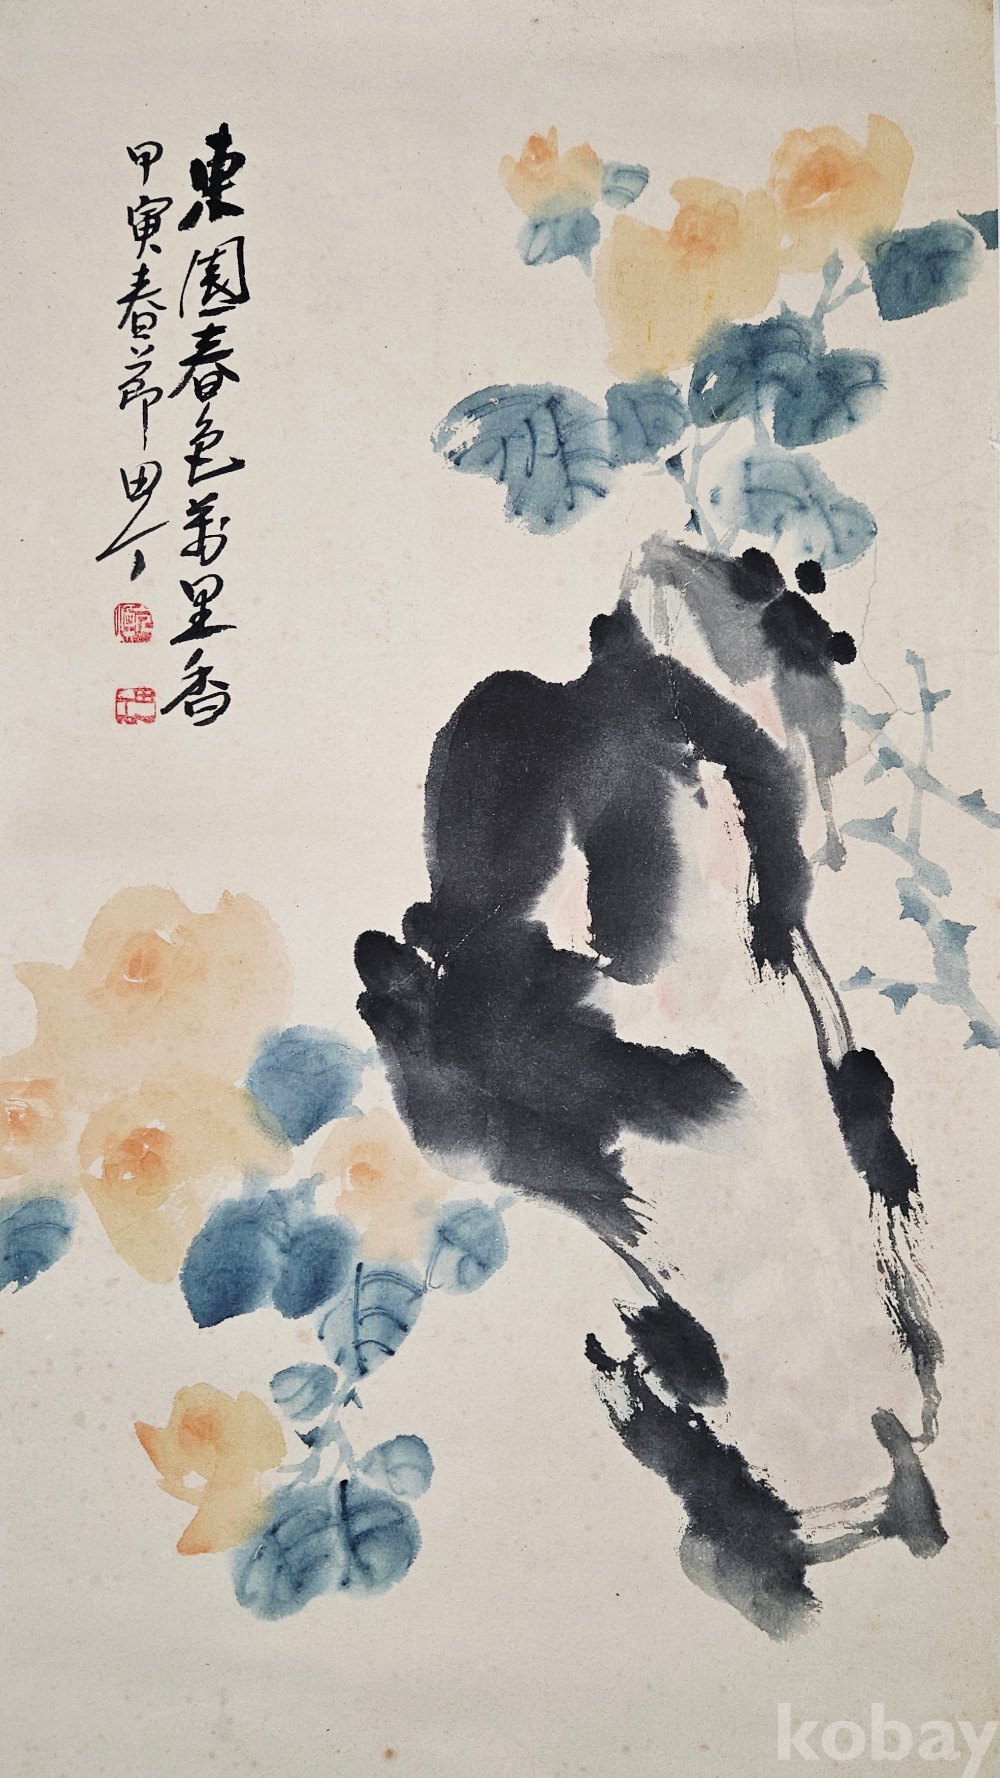 東園春色萬里香
甲寅春節
kobay